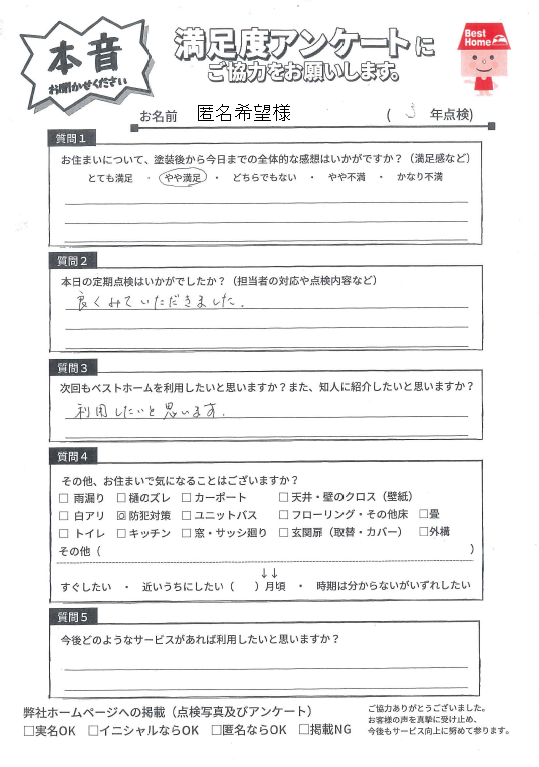 本音
お聞かせください
満足度アンケートに
ご協力をお願いします。
Best Home
お名前 匿名希望様 ( 3 年点検)
質問1
お住まいについて、塗装後から今日までの全体的な感想はいかがですか？（満足感など）
とても満足 ・ やや満足 ・ どちらでもない ・ やや不満 ・ かなり不満
質問2
本日の定期点検はいかがでしたか？（担当者の対応や点検内容など）
良くみていただきました。
質問3
次回もベストホームを利用したいと思いますか？また、知人に紹介したいと思いますか？
利用したいと思います。
質問4
その他、お住まいで気になることはございますか？
□ 雨漏り □ 樋のズレ □ カーポート □ 天井・壁のクロス（壁紙）
□ 白アリ ◎ 防犯対策 □ ユニットバス □ フローリング・その他床 □畳
□ トイレ □ キッチン □ 窓・サッシ廻り □ 玄関扉（取替・カバー） □外構
その他（ ）
↓↓
すぐしたい ・ 近いうちにしたい（ ）月頃 ・ 時期は分からないがいずれしたい
質問5
今後どのようなサービスがあれば利用したいと思いますか？
弊社ホームページへの掲載（点検写真及びアンケート）
□実名OK □イニシャルならOK □匿名ならOK □掲載NG
ご協力ありがとうございました。
お客様の声を真摯に受け止め、
今後もサービス向上に努めて参ります。